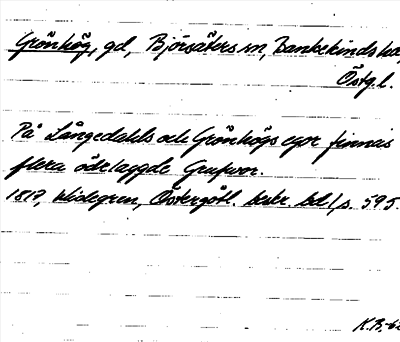 Grönhög, gd, Björsäters sn, Bankekinds hd,
Östg.l.
På Långedahls och Grönhögs egor finnas
flera ödelaggde Grufvor.
1817, Widegren, Östergötl. beskr. bd 1, s. 595.
K.B.-62